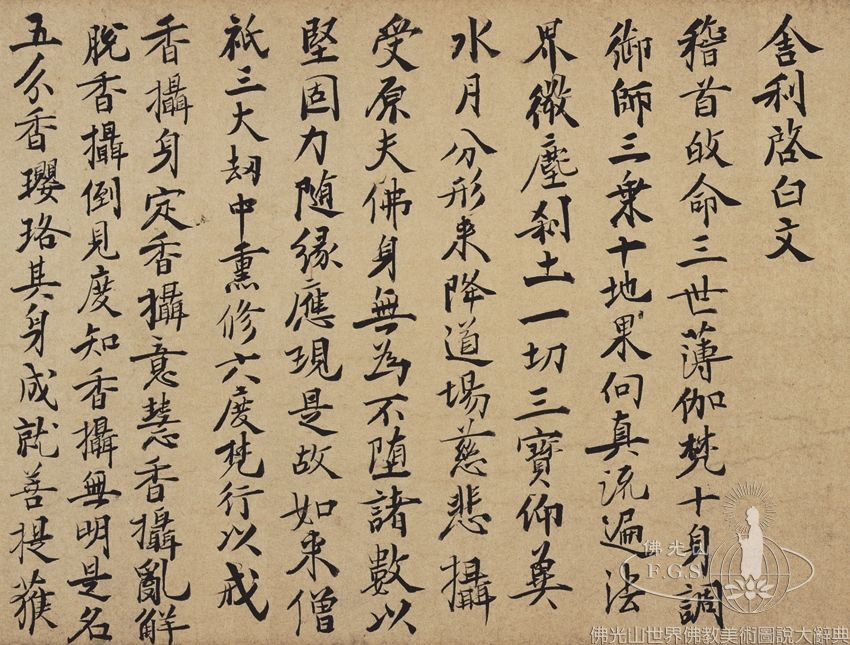 舍利啓白文
稽首敀命三世薄伽梵十身調
御師三乗十地果向真流遍法
界微塵刹土一切三寳仰兾
水月分形来降道場慈悲攝
受原夫佛身無為不堕諸數以
堅固力随緣應現是故如来僧
祇三大劫中熏修六度梵行以戒
香攝身定香攝意慧香攝亂解
脫香攝倒見度知香攝無明是名
五分香瓔珞其身成就善提獲
佛光山
F.G.S.
佛光山世界佛教美術圖說大辭典